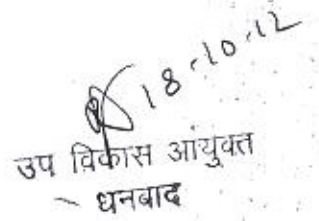 18.10.12
उप विकास आयुक्त
धनबाद